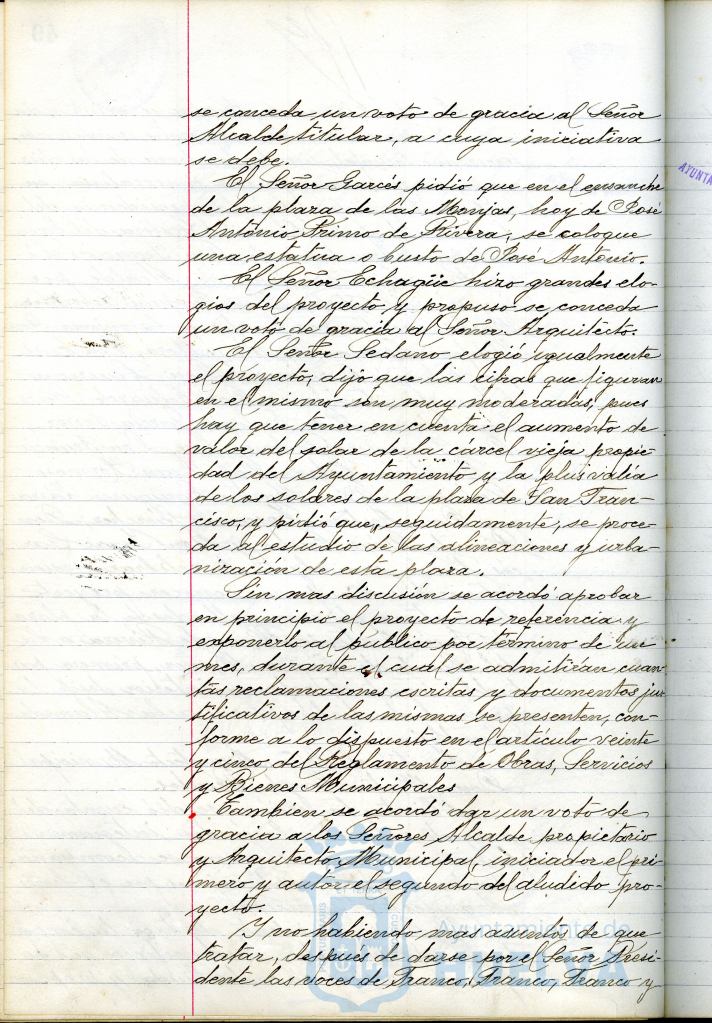 se conceda un voto de gracia al Señor
Alcalde titular, a cuya iniciativa
se debe.
El Señor Garcés pidió que en el ensanche
de la plaza de las Monjas, hoy de José
Antonio Primo de Rivera, se coloque
una estatua o busto de José Antonio.
El Señor Echagüe hizo grandes elo-
gios del proyecto y propuso se conceda
un voto de gracia al Señor Arquitecto.
El Señor Sedano elogió igualmente
el proyecto, dijo que las cifras que figuran
en el mismo son muy moderadas, pues
hay que tener en cuenta el aumento de
valor del solar de la cárcel vieja propie-
dad del Ayuntamiento y la plus valía
de los solares de la plaza de San Fran-
cisco, y pidió que, seguidamente, se proce-
da al estudio de las alineaciones y urba-
nización de esta plaza.
Sin mas discusión se acordó aprobar
en principio el proyecto de referencia y
exponerlo al público por término de un
mes, durante el cual se admitirán cuan-
tas reclamaciones escritas y documentos jus-
tificativos de las mismas se presenten, con-
forme a lo dispuesto en el artículo veinte
y cinco del Reglamento de Obras, Servicios
y Bienes Municipales
Tambien se acordó dar un voto de
gracia a los Señores Alcalde propietario
y Arquitecto Municipal, iniciador el pri-
mero y autor el segundo del aludido pro-
yecto.
Y no habiendo mas asuntos de que
tratar, despues de darse por el Señor Presi-
dente las voces de Franco, Franco, Franco y
AYUNTA
Ayuntamiento de
HUELVA